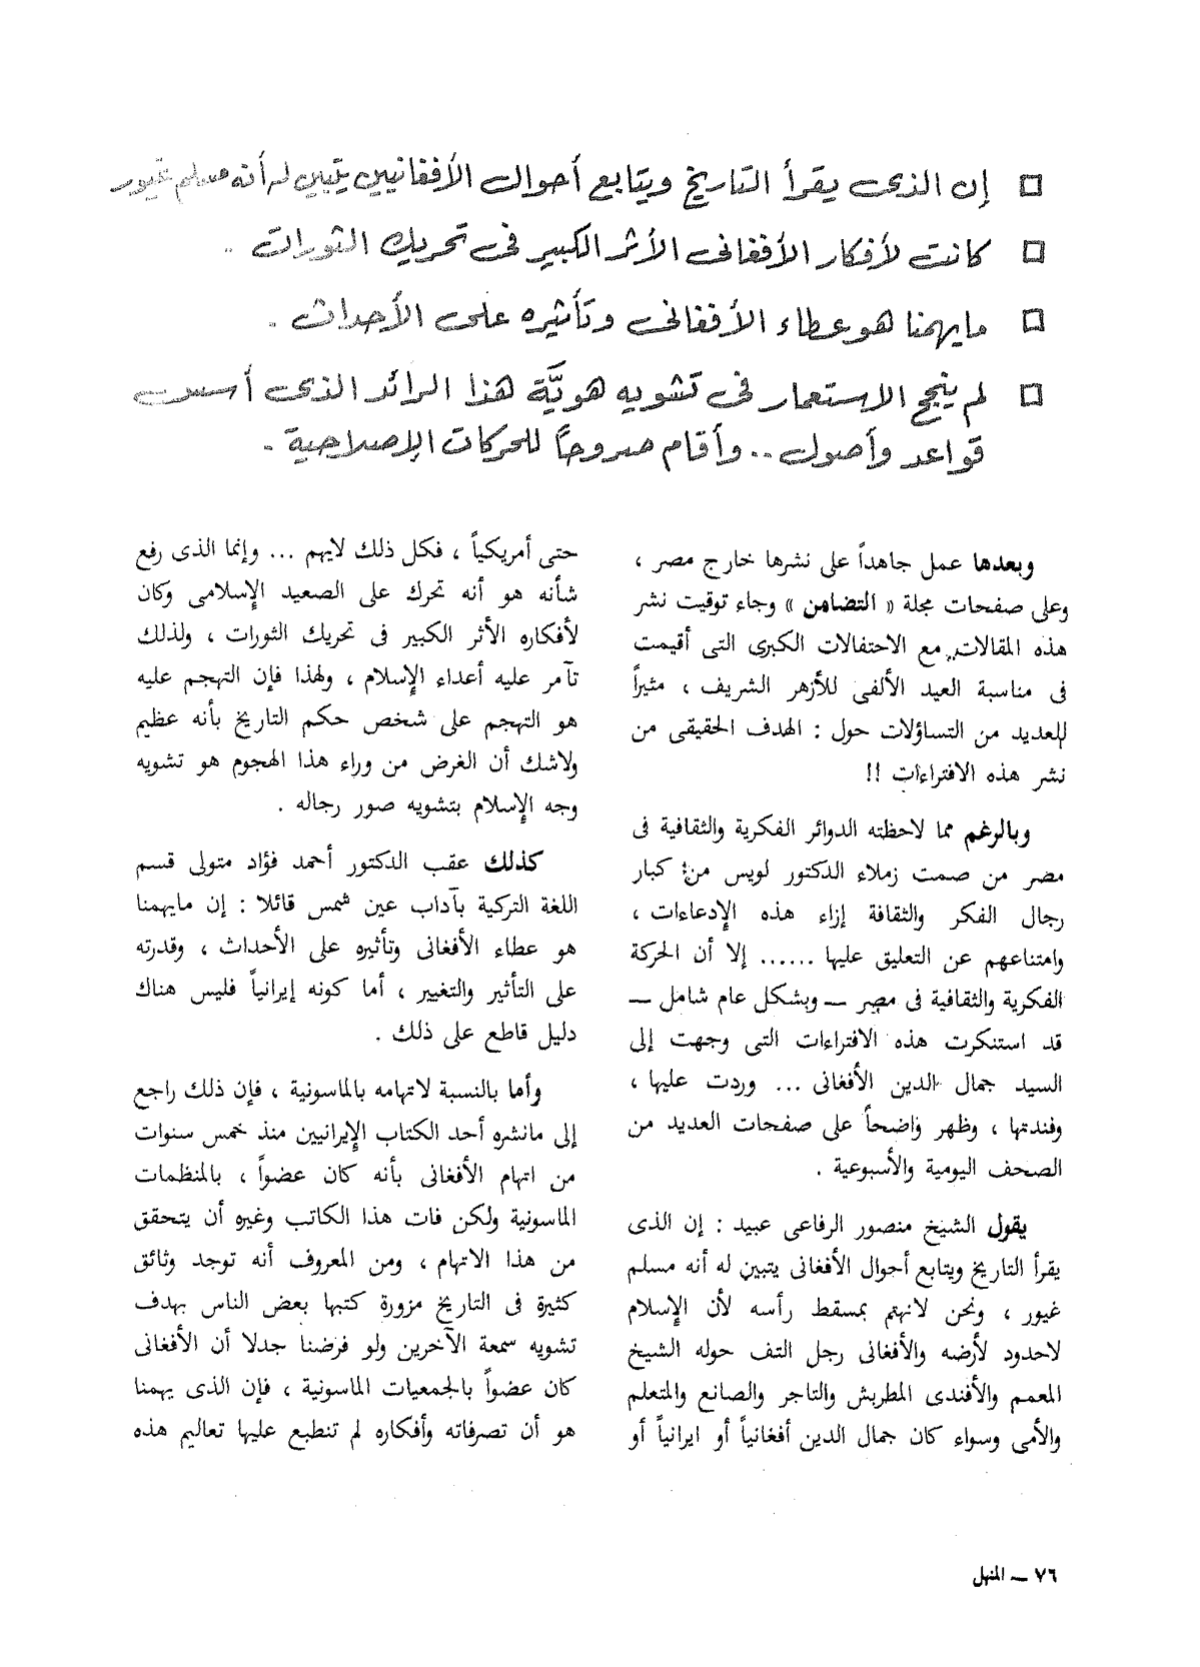 □ إن الذى يقرأ التاريخ ويتابع أحوال الأفغانيين يتبين له أنه مسلم غيور
□ كانت لأفكار الأفغانى الأثر الكبير فى تحريك الثورات ..
□ مايهمنا هو عطاء الأفغانى وتأثيره على الأحداث .
□ لم ينجح الاستعمار فى تشويه هويَّة هذا الرائد الذى أسس
قواعد وأصول .. وأقام صروحاً للحركات الإصلاحية .
وبعدها عمل جاهداً على نشرها خارج مصر ،
وعلى صفحات مجلة « التضامن » وجاء توقيت نشر
هذه المقالات مع الاحتفالات الكبرى التى أقيمت
فى مناسبة العيد الألفى للأزهر الشريف ، مثيراً
للعديد من التساؤلات حول : الهدف الحقيقى من
نشر هذه الافتراءات !!
وبالرغم مما لاحظته الدوائر الفكرية والثقافية فى
مصر من صمت زملاء الدكتور لويس من كبار
رجال الفكر والثقافة إزاء هذه الإدعاءات ،
وامتناعهم عن التعليق عليها ...... إلا أن الحركة
الفكرية والثقافية فى مصر — وبشكل عام شامل —
قد استنكرت هذه الافتراءات التى وجهت إلى
السيد جمال الدين الأفغانى ... وردت عليها ،
وفندتها ، وظهر واضحاً على صفحات العديد من
الصحف اليومية والأسبوعية .
يقول الشيخ منصور الرفاعى عبيد : إن الذى
يقرأ التاريخ ويتابع أحوال الأفغانى يتبين له أنه مسلم
غيور ، ونحن لانهتم بمسقط رأسه لأن الإسلام
لاحدود لأرضه والأفغانى رجل التف حوله الشيخ
المعمم والأفندى المطربش والتاجر والصانع والمتعلم
والأمى وسواء كان جمال الدين أفغانياً أو ايرانياً أو
حتى أمريكياً ، فكل ذلك لايهم ... وإنما الذى رفع
شأنه هو أنه تحرك على الصعيد الإسلامى وكان
لأفكاره الأثر الكبير فى تحريك الثورات ، ولذلك
تآمر عليه أعداء الإسلام ، ولهذا فإن التهجم عليه
هو التهجم على شخص حكم التاريخ بأنه عظيم
ولاشك أن الغرض من وراء هذا الهجوم هو تشويه
وجه الإسلام بتشويه صور رجاله .
كذلك عقب الدكتور أحمد فؤاد متولى قسم
اللغة التركية بآداب عين شمس قائلا : إن مايهمنا
هو عطاء الأفغانى وتأثيره على الأحداث ، وقدرته
على التأثير والتغيير ، أما كونه إيرانياً فليس هناك
دليل قاطع على ذلك .
وأما بالنسبة لاتهامه بالماسونية ، فإن ذلك راجع
إلى مانشره أحد الكتاب الإيرانيين منذ خمس سنوات
من اتهام الأفغانى بأنه كان عضواً ، بالمنظمات
الماسونية ولكن فات هذا الكاتب وغيره أن يتحقق
من هذا الاتهام ، ومن المعروف أنه توجد وثائق
كثيرة فى التاريخ مزورة كتبها بعض الناس بهدف
تشويه سمعة الآخرين ولو فرضنا جدلا أن الأفغانى
كان عضواً بالجمعيات الماسونية ، فإن الذى يهمنا
هو أن تصرفاته وأفكاره لم تنطبع عليها تعاليم هذه
٧٦ — المنهل